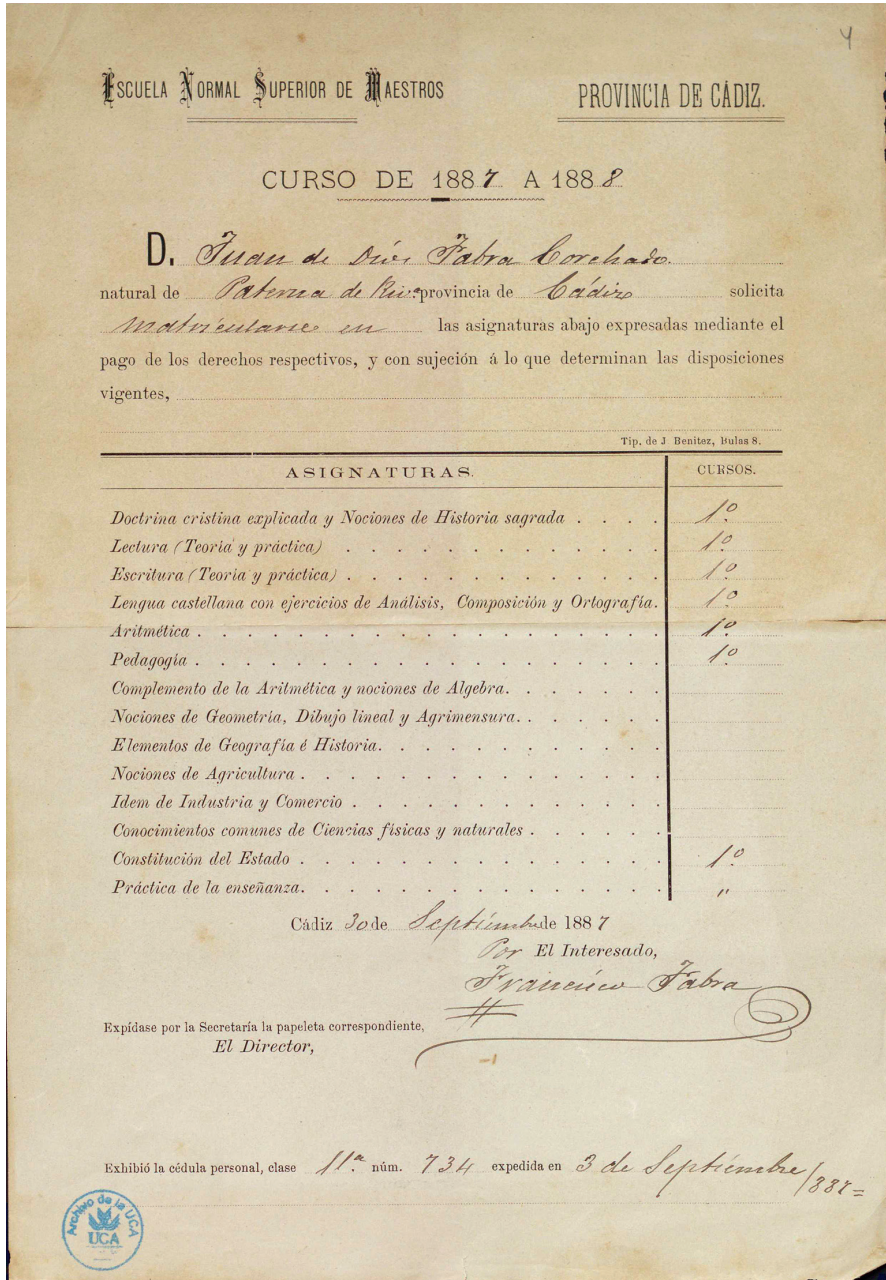 4
ESCUELA NORMAL SUPERIOR DE MAESTROS
PROVINCIA DE CÁDIZ.
CURSO DE 1887 A 1888
D. Juan de Dios Fabra Corchado.
natural de Paterna de Riva provincia de Cádiz solicita
matricularse en las asignaturas abajo expresadas mediante el
pago de los derechos respectivos, y con sujeción á lo que determinan las disposiciones
vigentes,
Tip. de J Benitez, Bulas 8.
ASIGNATURAS. CURSOS.
Doctrina cristina explicada y Nociones de Historia sagrada . . . . 1º
Lectura (Teoría y práctica) . . . . . . . . . . . . . 1º
Escritura (Teoría y práctica) . . . . . . . . . . . . . 1º
Lengua castellana con ejercicios de Análisis, Composición y Ortografía. 1º
Aritmética . . . . . . . . . . . . . . . . . . . 1º
Pedagogía . . . . . . . . . . . . . . . . . . . 1º
Complemento de la Aritmética y nociones de Algebra. . . . . . .
Nociones de Geometría, Dibujo lineal y Agrimensura. . . . . . .
Elementos de Geografía é Historia. . . . . . . . . . . .
Nociones de Agricultura . . . . . . . . . . . . . . .
Idem de Industria y Comercio . . . . . . . . . . . . .
Conocimientos comunes de Ciencias físicas y naturales . . . . . .
Constitución del Estado . . . . . . . . . . . . . . . 1º
Práctica de la enseñanza. . . . . . . . . . . . . . . "
Cádiz 30 de Septiembre de 1887
Por El Interesado,
Francisco Fabra
Expídase por la Secretaría la papeleta correspondiente,
El Director,
Exhibió la cédula personal, clase 11.ª núm. 734 expedida en 3 de Septiembre/887=
Archivo de la UCA
UCA